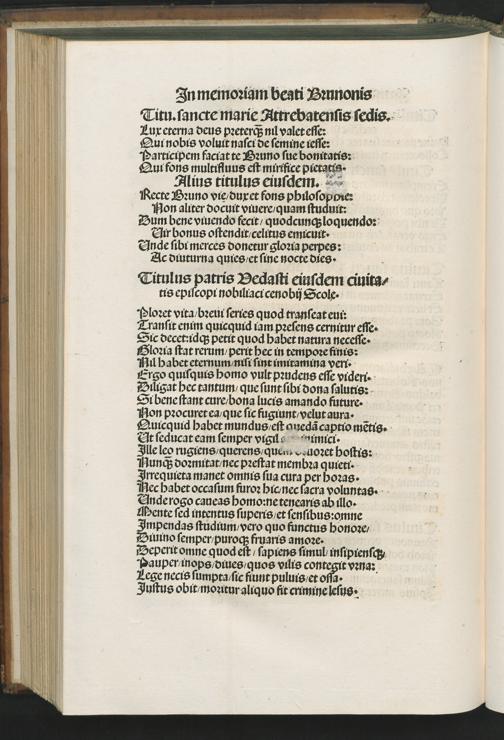 In memoriam beati Brunonis
Titu. sancte marie Attrebatensis sedis.
Lux eterna deus preterq̃ nil valet esse:
Qui nobis voluit nasci de semine iesse:
Participem faciat te Bruno sue bonitatis:
Qui fons multifluus est mirifice pietatis.
Alius titulus eiusdem.
Recte Bruno vie/dux et fons philosophie:
Non aliter docuit viuere/quam studuit:
Dum bene viuendo fecit/quodcunq̨ loquendo:
Vir bonus ostendit/celitus emicuit.
Unde sibi merces donetur gloria perpes:
Ac diuturna quies/et sine nocte dies.
Titulus patris Vedasti eiusdem ciuita/
tis episcopi nobiliaci cenobij Scole.
Ploret vita/breui series quod transeat eui:
Transit enim quicquid iam presens cernitur esse.
Sic decet:idq̨ petit quod habet natura necesse.
Gloria stat rerum/perit hec in tempore finis:
Nil habet eternum/nisi sint imitamina veri.
Ergo quisquis homo vult prudens esse videri.
Diligat hec tantum/que sunt sibi dona salutis:
Si bene stant cure/bona lucis amando future.
Non procuret ea/que sic fugiunt/velut aura.
Quicquid habet mundus/est quedã captio mẽtis.
Ut seducat eam semper vigil inimici.
Ille leo rugiens/querens/quem deuoret hostis:
Nunq̃ dormitat/nec prestat membra quieti.
Irrequieta manet omnis sua cura per horas.
Nec habet occasum furor hic/nec sacra voluntas.
Unde rogo caueas homo:ne tenearis ab illo.
Mente sed intentus superis/et sensibus:omne
Impendas studium/vero quo functus honore/
Diuino semper/puroq̨ fruaris amore.
Deperit omne quod est/sapiens simul/insipiensq̨/
Pauper/inops/diues/quos vilis contegit vrna:
Lege necis sumpta/sic fiunt puluis/et ossa.
Justus obit/moritur aliquo sit crimine lesus.